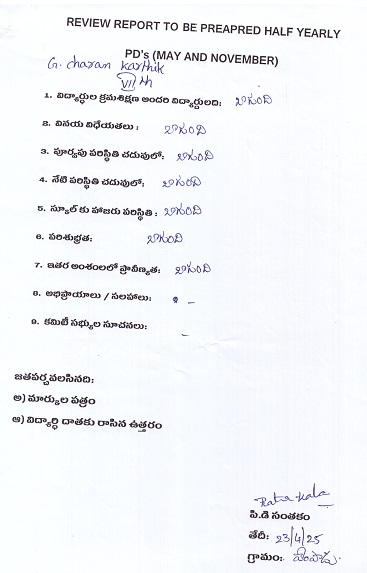 REVIEW REPORT TO BE PREAPRED HALF YEARLY
PD's (MAY AND NOVEMBER)
G. charan karthik
VII th
1. విద్యార్థుల క్రమశిక్షణ అందరి విద్యార్థులది: బాగుంది
2. వినయ విధేయతలు : బాగుంది
3. పూర్వపు పరిస్థితి చదువులో: బాగుంది
4. నేటి పరిస్థితి చదువులో: బాగుంది
5. స్కూల్ కు హాజరు పరిస్థితి : బాగుంది
6. పరిశుభ్రత: బాగుంది
7. ఇతర అంశంలలో ప్రావీణ్యత: బాగుంది
8. అభిప్రాయాలు / సలహాలు: -
9. కమిటీ సభ్యుల సూచనలు: -
జతపర్చవలసినది:
అ) మార్కుల పత్రం
ఆ) విద్యార్థి దాతకు రాసిన ఉత్తరం
పి.డి సంతకం
తేదీ: 23/4/25
గ్రామం: